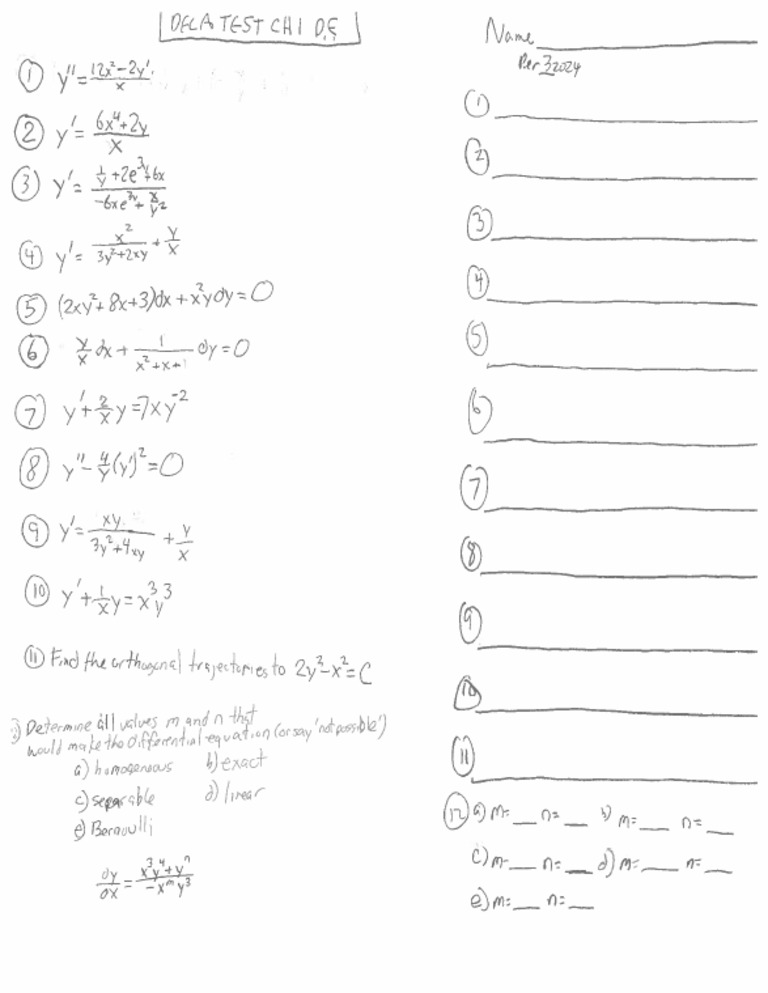 DELA TEST CH 1 D.E.
Name
Per 3 2024
① y'' = (12x² - 2y')/x
② y' = (6x⁴ + 2y)/x
③ y' = (1/y + 2e^(3y) + 6x)/(-6xe^(3y) + x/y²)
④ y' = x²/(3y² + 2xy) + y/x
⑤ (2xy² + 8x + 3)dx + x²y dy = 0
⑥ y/x dx + 1/(x² + x + 1) dy = 0
⑦ y' + 2/x y = 7xy⁻²
⑧ y'' - 4/y (y')² = 0
⑨ y' = xy/(3y² + 4xy) + y/x
⑩ y' + 1/x y = x³y³
⑪ Find the orthogonal trajectories to 2y² - x² = C
Determine all values m and n that
would make the differential equation (or say 'not possible')
a) homogenous b) exact
c) separable d) linear
e) Bernoulli
dy/dx = (x³y⁴ + yⁿ)/(-xᵐy³)
①
②
③
④
⑤
⑥
⑦
⑧
⑨
⑩
⑪
⑫ a) m= n= b) m= n=
c) m= n= d) m= n=
e) m= n=